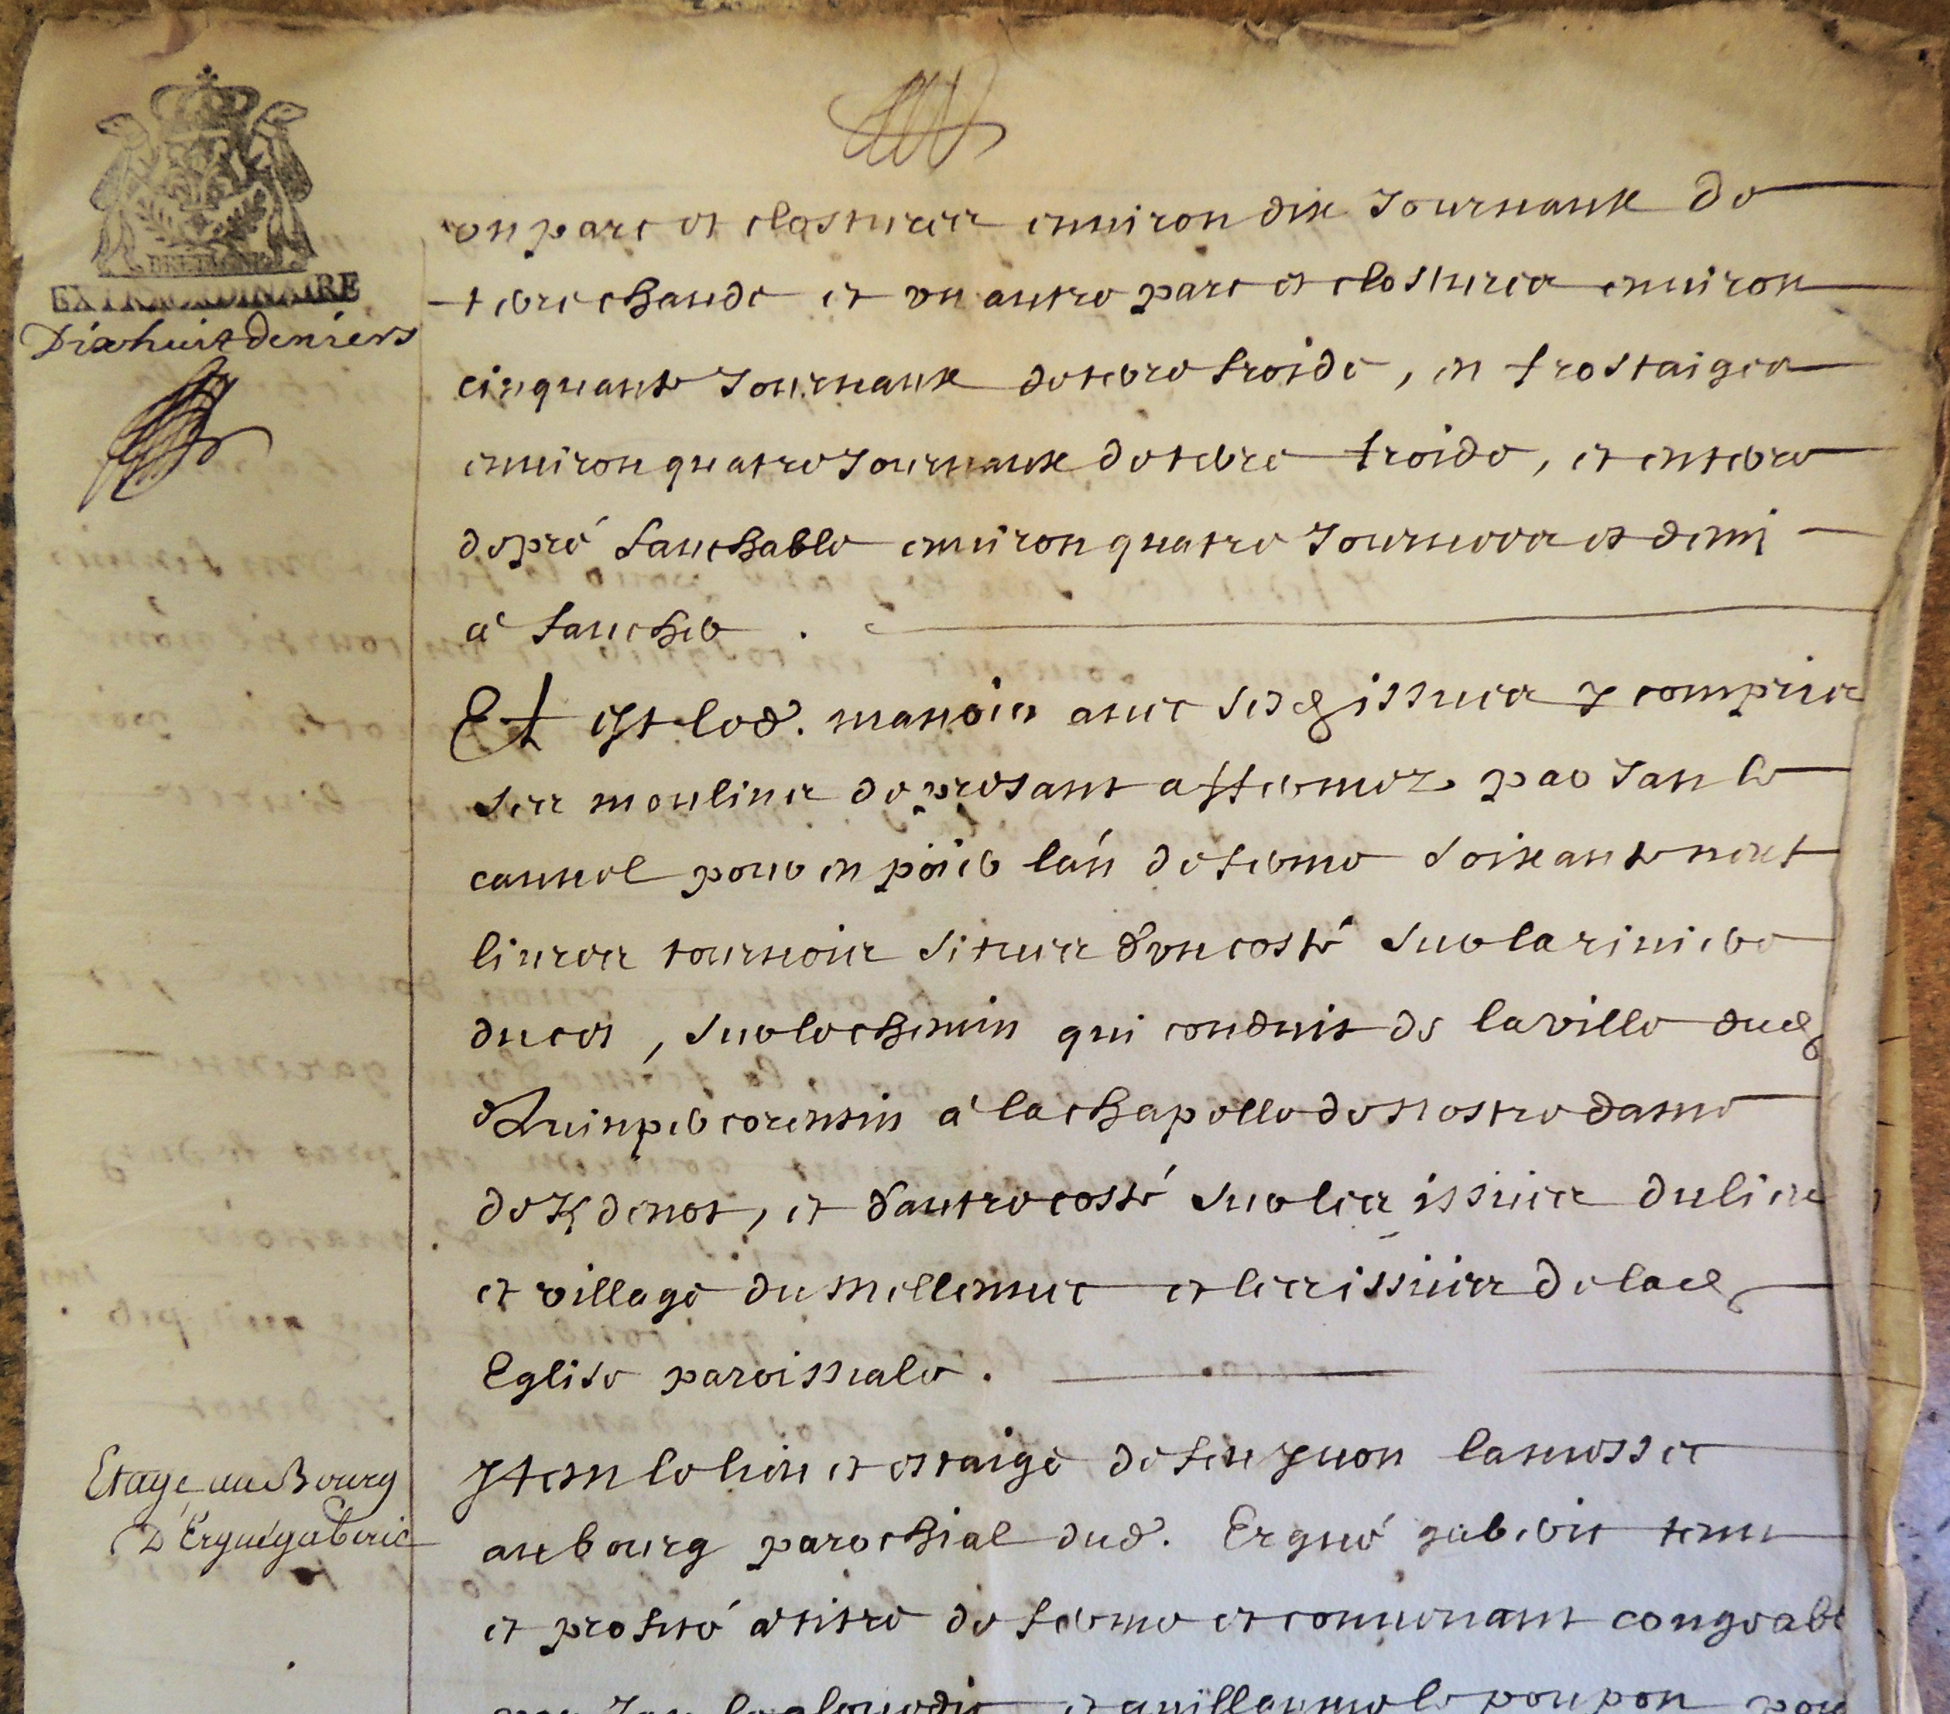 BRETAGNE
EXTRAORDINAIRE
Dixhuit deniers
en parc et closturer environ dix Journaux de
terre chaude et vn autre parc et closturer environ
cinquante Journaux de terre froide, en frostaiger
enuiron quatre Journaux de terre froide, et en terre
de pré fauchable enuiron quatre Journeer et demi
a faucher .
Et est led. manoir auec ses issuer y compris
ser moulinr de presant affermez par Jan le
cannel pour en païer lán de ferme soixante neuf
liurer tournoir situer d'vn costé sur la riuiere
du Jet, sur le chemin qui conduit de la ville dud
Quimper corentin a la chapelle de nostre dame
de Kdenot, et d'autre costé sur ler issüer du lieu
et village du Mellenuec et ler issüer de lad
Eglise paroissiale .
Etage au Bourg
D'Erguégaberic
Jtem le lieu et estaige de feu yuon lamosser
au bourg parochial dud. Ergué gaberic tenu
et profité a titre de ferme et conuenant congeable
par Jan et guillaume le poupon pour